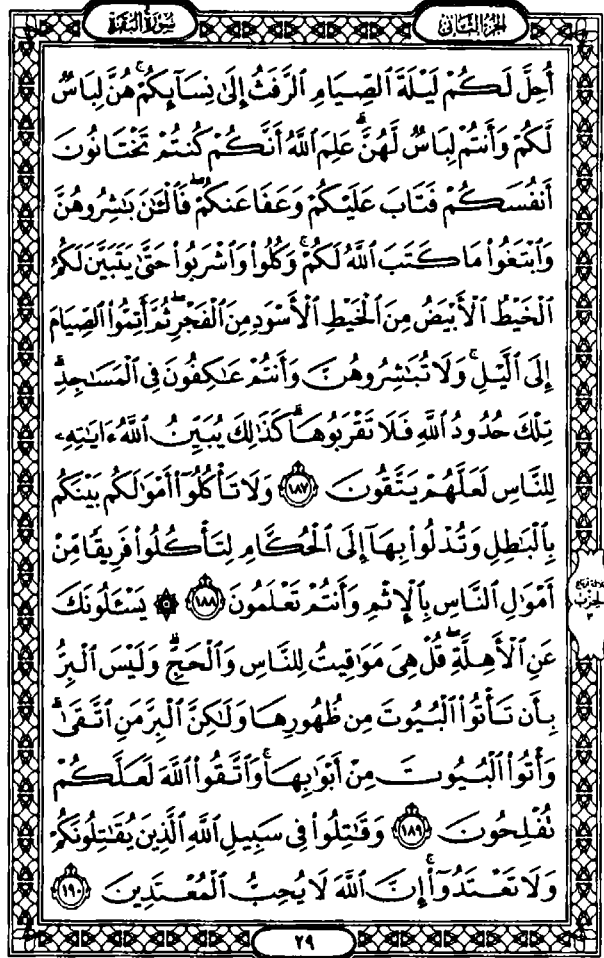 الجزء الثاني
سورة البقرة
أُحِلَّ لَكُمْ لَيْلَةَ ٱلصِّيَامِ ٱلرَّفَثُ إِلَىٰ نِسَآئِكُمْ ۚ هُنَّ لِبَاسٌ
لَّكُمْ وَأَنتُمْ لِبَاسٌ لَّهُنَّ ۗ عَلِمَ ٱللَّهُ أَنَّكُمْ كُنتُمْ تَخْتَانُونَ
أَنفُسَكُمْ فَتَابَ عَلَيْكُمْ وَعَفَا عَنكُمْ ۖ فَٱلْـَٰٔنَ بَـٰشِرُوهُنَّ
وَٱبْتَغُوا۟ مَا كَتَبَ ٱللَّهُ لَكُمْ ۚ وَكُلُوا۟ وَٱشْرَبُوا۟ حَتَّىٰ يَتَبَيَّنَ لَكُمُ
ٱلْخَيْطُ ٱلْأَبْيَضُ مِنَ ٱلْخَيْطِ ٱلْأَسْوَدِ مِنَ ٱلْفَجْرِ ۖ ثُمَّ أَتِمُّوا۟ ٱلصِّيَامَ
إِلَى ٱلَّيْلِ ۚ وَلَا تُبَـٰشِرُوهُنَّ وَأَنتُمْ عَـٰكِفُونَ فِى ٱلْمَسَـٰجِدِ ۗ
تِلْكَ حُدُودُ ٱللَّهِ فَلَا تَقْرَبُوهَا ۗ كَذَٰلِكَ يُبَيِّنُ ٱللَّهُ ءَايَـٰتِهِۦ
لِلنَّاسِ لَعَلَّهُمْ يَتَّقُونَ ١٨٧ وَلَا تَأْكُلُوٓا۟ أَمْوَٰلَكُم بَيْنَكُم
بِٱلْبَـٰطِلِ وَتُدْلُوا۟ بِهَآ إِلَى ٱلْحُكَّامِ لِتَأْكُلُوا۟ فَرِيقًا مِّنْ
أَمْوَٰلِ ٱلنَّاسِ بِٱلْإِثْمِ وَأَنتُمْ تَعْلَمُونَ ١٨٨ ۞ يَسْـَٔلُونَكَ
عَنِ ٱلْأَهِلَّةِ ۖ قُلْ هِىَ مَوَٰقِيتُ لِلنَّاسِ وَٱلْحَجِّ ۗ وَلَيْسَ ٱلْبِرُّ
بِأَن تَأْتُوا۟ ٱلْبُيُوتَ مِن ظُهُورِهَا وَلَـٰكِنَّ ٱلْبِرَّ مَنِ ٱتَّقَىٰ ۗ
وَأْتُوا۟ ٱلْبُيُوتَ مِنْ أَبْوَٰبِهَا ۚ وَٱتَّقُوا۟ ٱللَّهَ لَعَلَّكُمْ
تُفْلِحُونَ ١٨٩ وَقَـٰتِلُوا۟ فِى سَبِيلِ ٱللَّهِ ٱلَّذِينَ يُقَـٰتِلُونَكُمْ
وَلَا تَعْتَدُوٓا۟ ۚ إِنَّ ٱللَّهَ لَا يُحِبُّ ٱلْمُعْتَدِينَ ١٩٠
الحزب
٣
٢٩